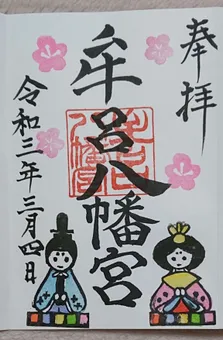 奉拝
牟呂八幡宮
令和三年三月四日